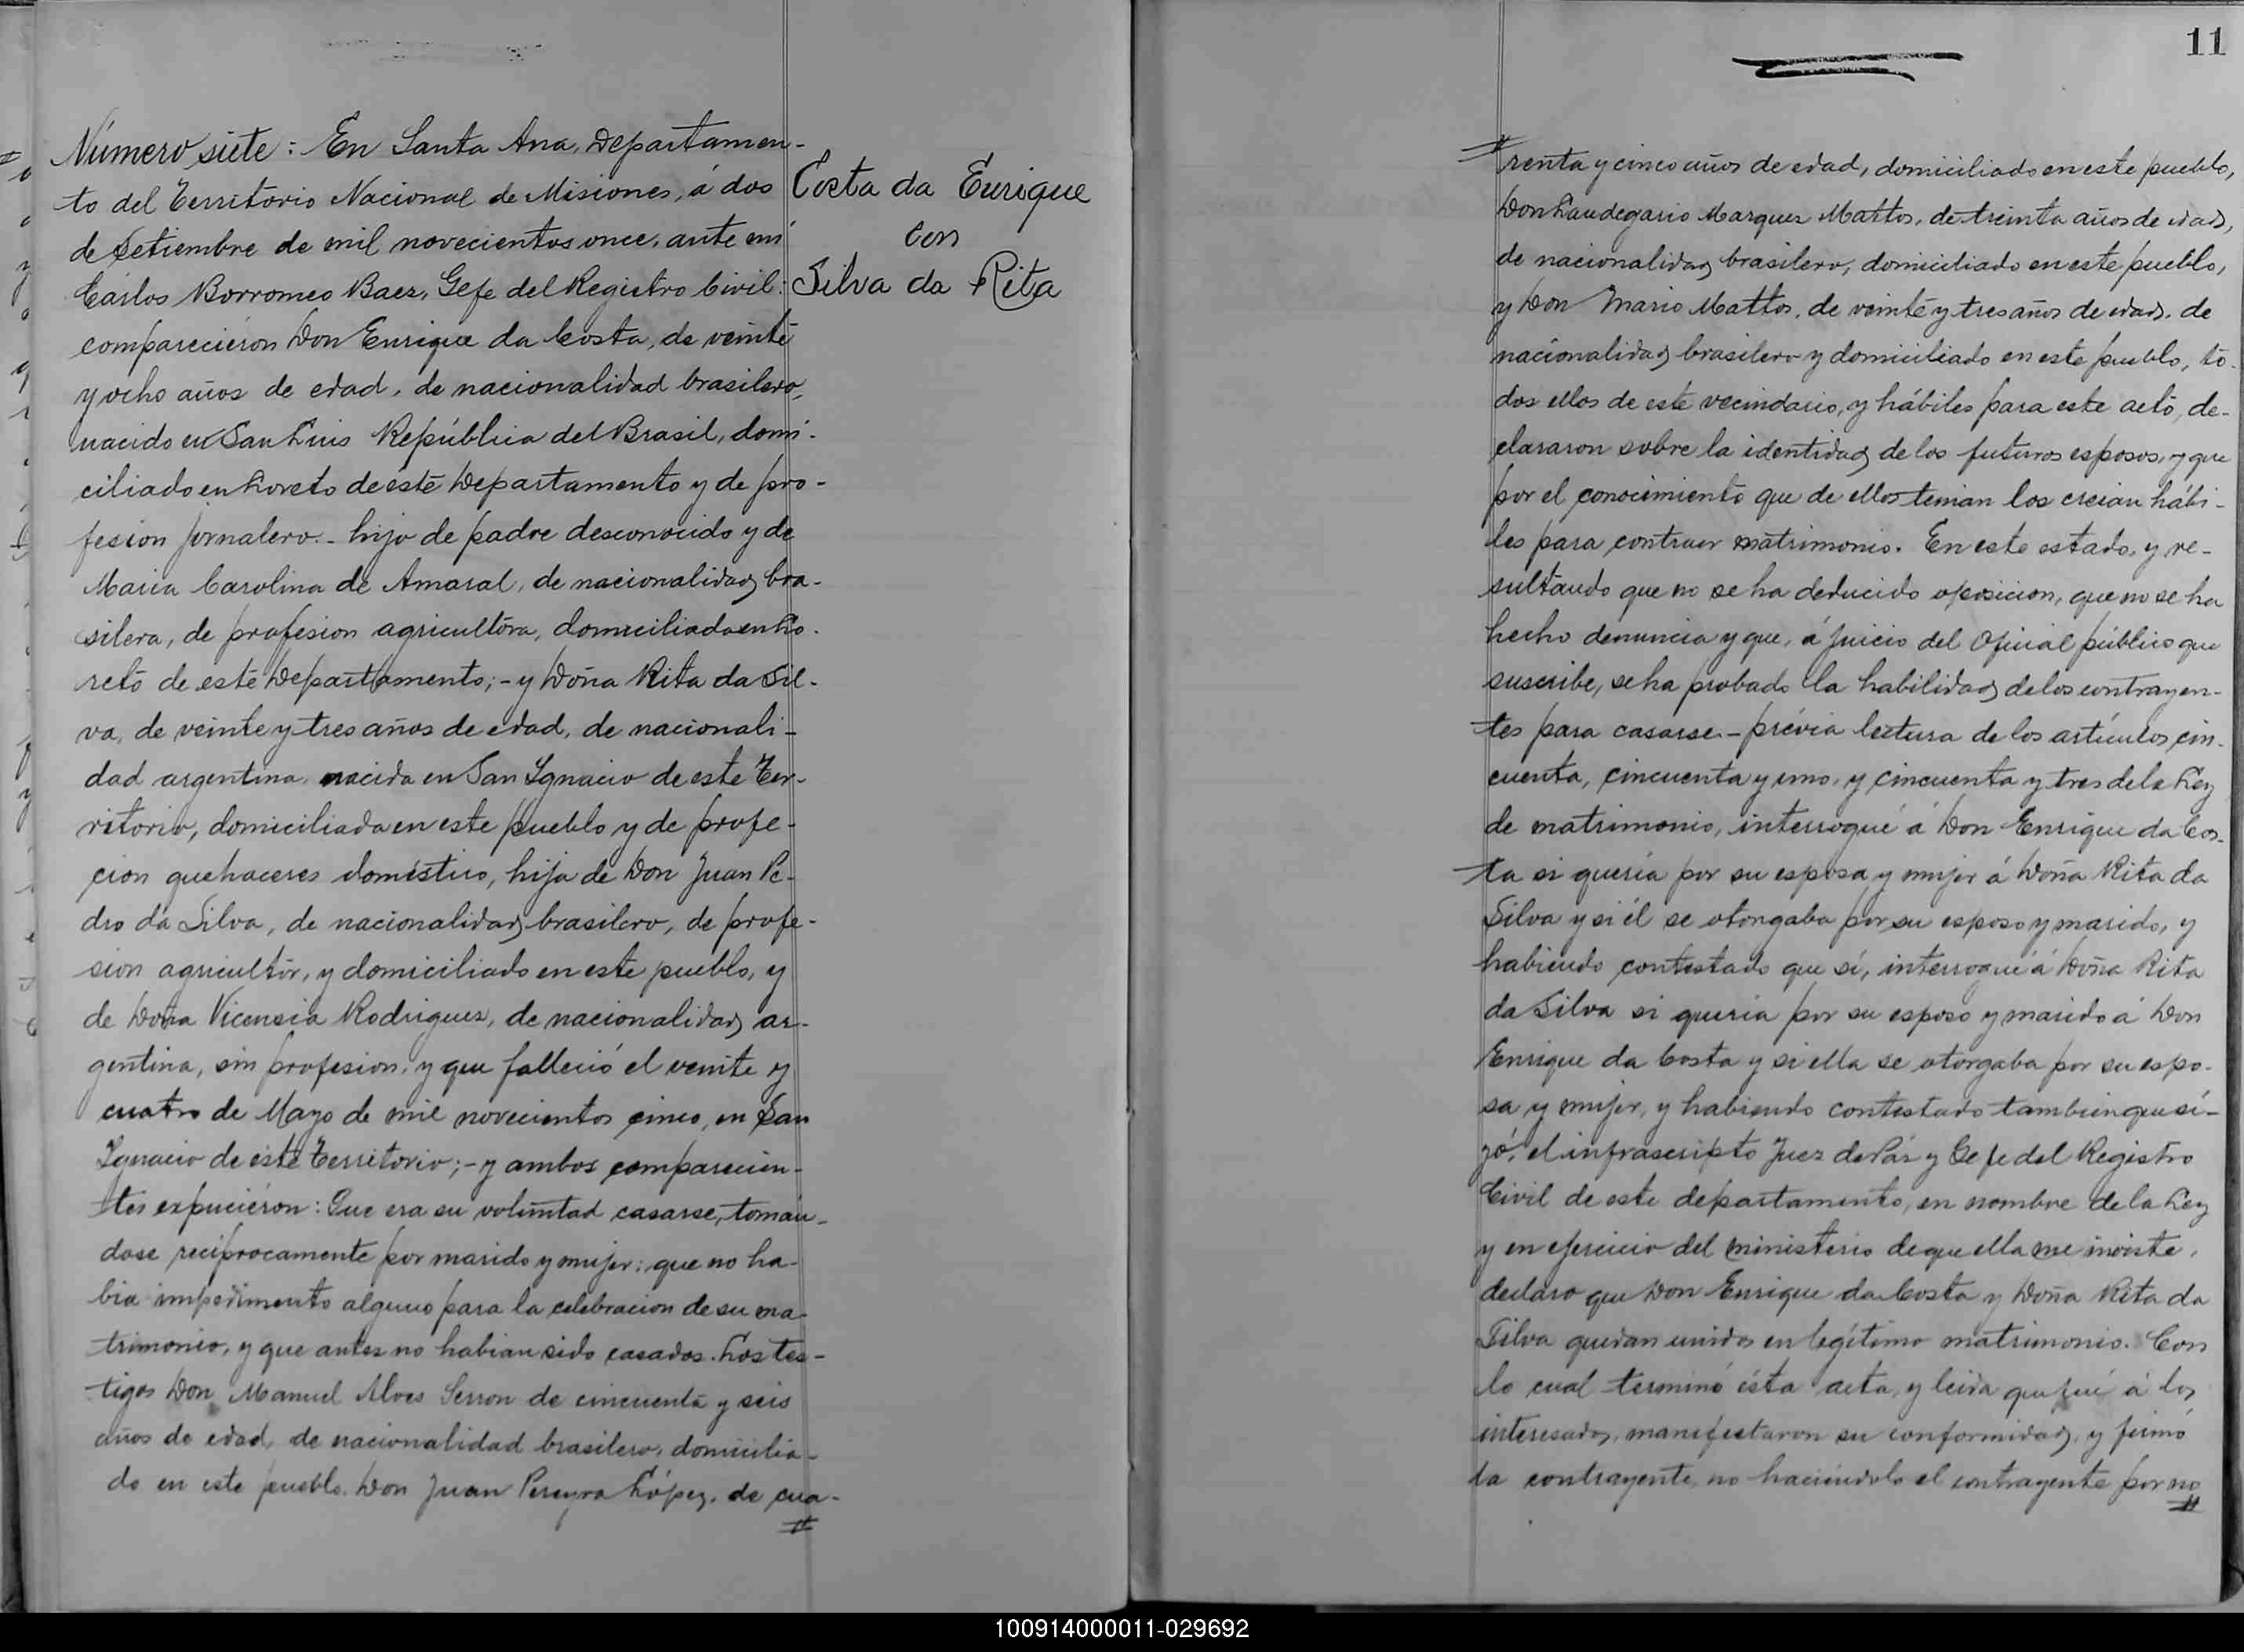 Número siete: En Santa Ana, Departamen-
to del Territorio Nacional de Misiones, á dos
de Setiembre de mil novecientos once, ante mí
Cárlos Borromeo Baez, Gefe del Registro Civil:
comparecieron Don Enrique da Costa, de veinte
y ocho años de edad, de nacionalidad brasilero,
nacido en San Luis República del Brasil, domi-
ciliado en Loreto de éste Departamento y de pro-
fesion jornalero.- hijo de padre desconocido y de
Maria Carolina de Amaral, de nacionalidad bra-
silera, de profesion agricultora, domiciliada en Lo-
reto de este Departamento;- y Doña Rita da Sil-
va, de veinte y tres años de edad, de nacionali-
dad argentina, nacida en San Ygnacio de este Ter-
ritorio, domiciliada en este pueblo y de profe-
cion quehaceres doméstico, hija de Don Juan Pe-
dro da Silva, de nacionalidad brasilero, de profe-
sion agricultor, y domiciliado en este pueblo, y
de Doña Vicensia Rodriguez, de nacionalidad ar-
gentina, sin profesion, y que falleció el veinte y
cuatro de Mayo de mil novecientos cinco, en San
Ygnacio de éste Territorio;- y ambos comparecien-
tes expucieron: Que era su voluntad casarse, toman-
dose reciprocamente por marido y mujer: que no ha-
bia impedimento alguno para la celebracion de su ma-
trimonio, y que antes no habian sido casados. Los tes-
tigos Don Manuel Alves Serron de cincuenta y seis
años de edad, de nacionalidad brasilero, domicilia-
do en este pueblo. Don Juan Pereyra López, de cua-
Costa da Enrique
con
Silva da Rita
11
renta y cinco años de edad, domiciliado en este pueblo,
Don Laudegario Marquez Mattos, de treinta años de edad,
de nacionalidad brasilero, domiciliado en este pueblo,
y Don Mario Mattos, de veinte y tres años de edad, de
nacionalidad brasilero y domiciliado en este pueblo, to-
dos ellos de este vecindario, y hábiles para este acto, de-
clararon sobre la identidad de los futuros esposos, y que
por el conocimiento que de ellos tenian los creian hábi-
les para contraer matrimonio. En este estado, y re-
sultando que no se ha deducido oposicion, que no se ha
hecho denuncia y que, á juicio del Oficial público que
suscribe, se ha probado la habilidad de los contrayen-
tes para casarse.- prévia lectura de los artículos cin-
cuenta, cincuenta y uno, y cincuenta y tres de la Ley
de matrimonio, interrogué á Don Enrique da Cos-
ta si quería por su esposa y mujer á Doña Rita da
Silva y si él se otorgaba por su esposo y marido, y
habiendo contestado que sí, interrogué á Doña Rita
da Silva si queria por su esposo y marido á Don
Enrique da Costa y si ella se otorgaba por su espo-
sa y mujer, y habiendo contestado tambien que sí-
yó, el infrascripto Juez de Páz y Gefe del Registro
Civil de este departamento, en nombre de la Ley
y en ejercicio del ministerio de que ella me inviste,
declaro que Don Enrique da Costa y Doña Rita da
Silva quedan unidos en legítimo matrimonio. Con
lo cual terminó ésta acta, y leida que fué á los
interesados, manifestaron su conformidad, y firmó
la contrayente, no haciéndolo el contrayente por no
100914000011-029692